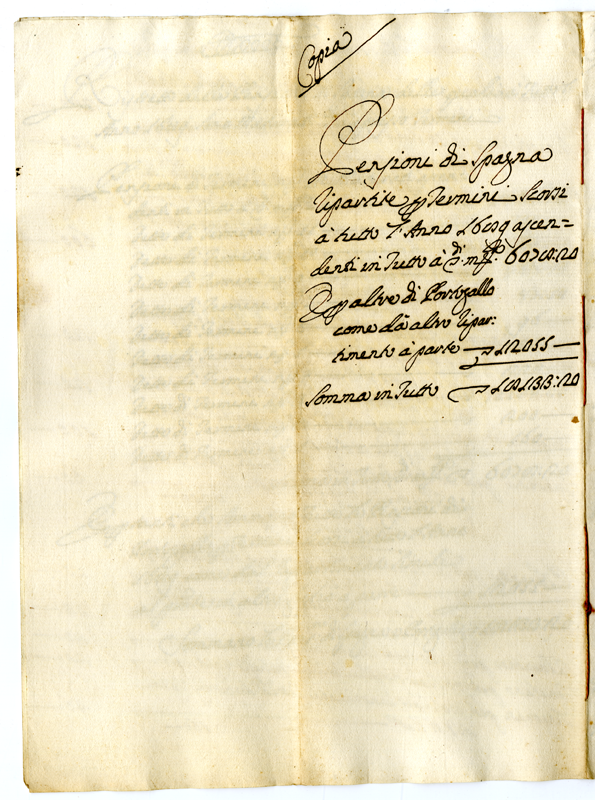 Copia
Pensioni di Spagna
ripartite p Termini scorsi
à tutto l'Anno 1689 ascen=
denti in tutto à 6078:20
E p altre di Portugallo
come dà altro ripar:
timento à parte — 12055 —
Somma in tutto 18133:20